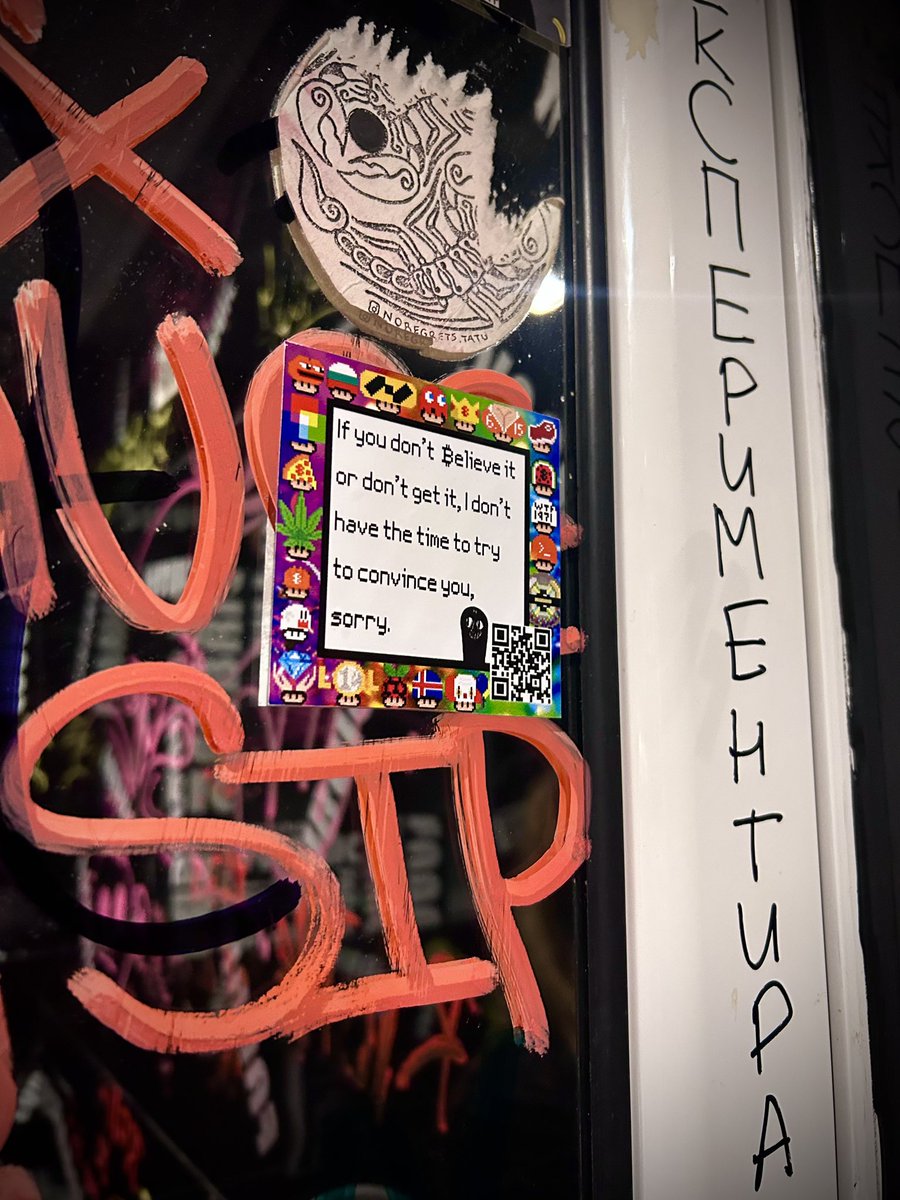 @NOREGRETS.TATU
If you don't ₿elieve it
or don't get it, I don't
have the time to try
to convince you,
sorry.
WTF
1971
SIP
КСПЕРИМЕНТИРА